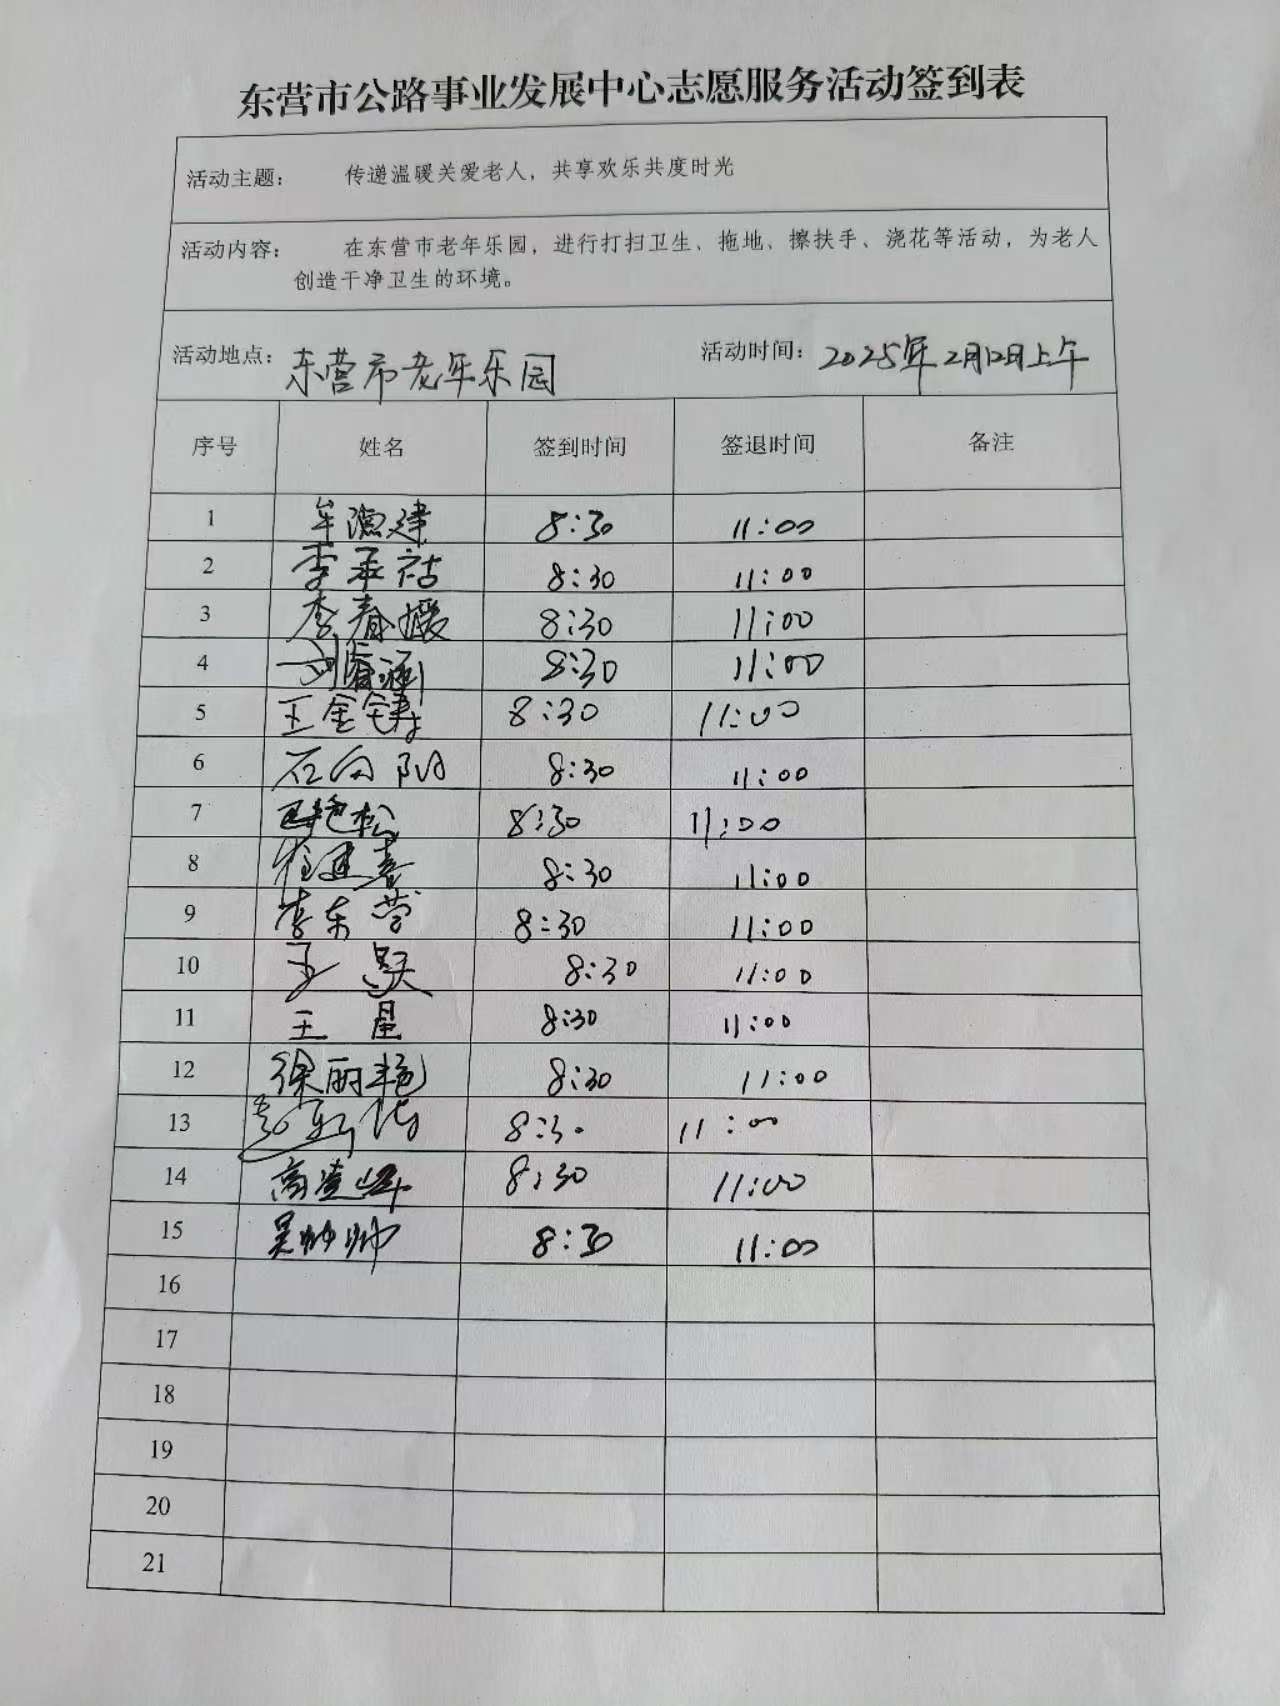 东营市公路事业发展中心志愿服务活动签到表
活动主题： 传递温暖关爱老人，共享欢乐共度时光
活动内容： 在东营市老年乐园，进行打扫卫生、拖地、擦扶手、浇花等活动，为老人
创造干净卫生的环境。
活动地点： 东营市老年乐园 活动时间： 2025年2月12日上午
序号 姓名 签到时间 签退时间 备注
1 8:30 11:00
2 李承祜 8:30 11:00
3 李春媛 8:30 11:00
4 8:30 11:00
5 王金铸 8:30 11:00
6 石向阳 8:30 11:00
7 8:30 11:00
8 8:30 11:00
9 李东营 8:30 11:00
10 8:30 11:00
11 王星 8:30 11:00
12 徐丽艳 8:30 11:00
13 8:30 11:00
14 高凌峰 8:30 11:00
15 吴帅帅 8:30 11:00
16
17
18
19
20
21